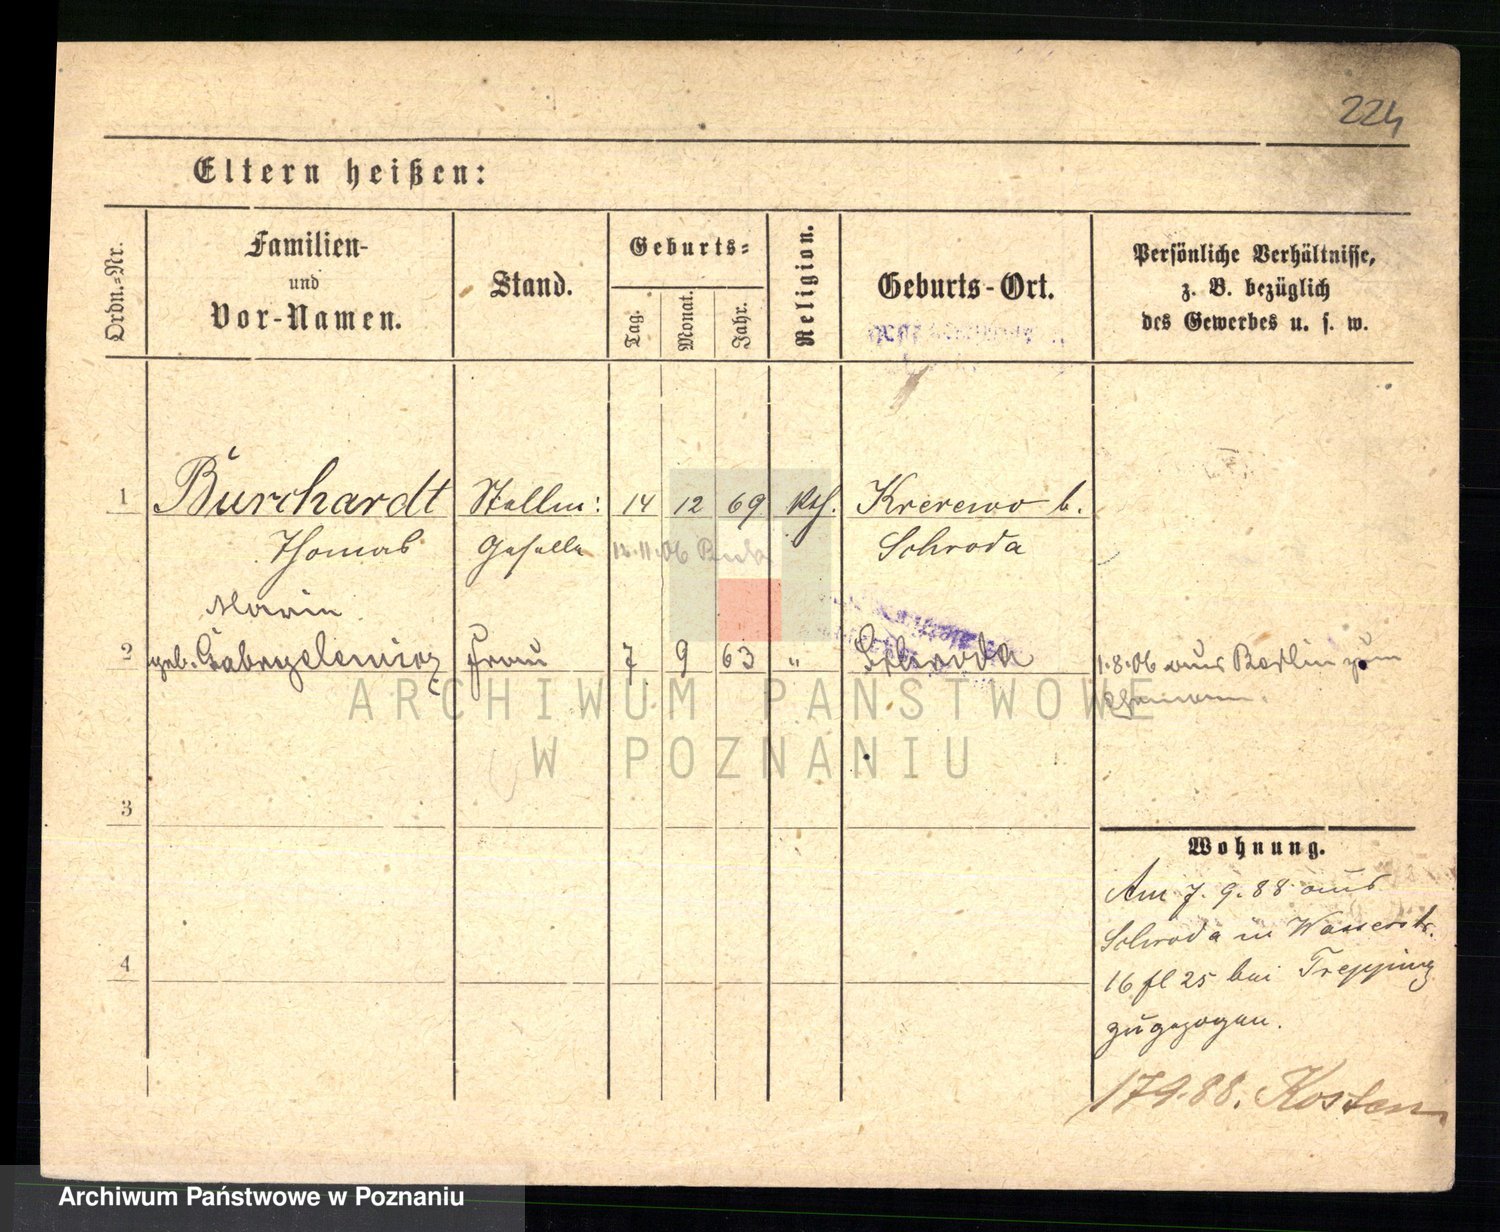 224
Eltern heißen:
Ordn.-Nr.
Familien-
und
Vor-Namen.
Stand.
Geburts-
Tag.
Monat.
Jahr.
Religion.
Geburts-Ort.
Persönliche Verhältnisse,
z. B. bezüglich
des Gewerbes u. s. w.
1 Burchardt Stellm: 14 12 69 Kth. Krerewo b.
Thomas Geselle 12.11.06 Schroda
Maria
2 geb. Gabryelewicz Frau 7 9 63 " Schroda 1.8.06 aus Berlin zum
Ehemann.
ARCHIWUM PAŃSTWOWE
W POZNANIU
3
Wohnung.
Am 7. 9. 88 aus
Schroda in Wasserstr.
4
16 fl 25 bei
zugezogen.
17 9. 88. Kosten
Archiwum Państwowe w Poznaniu